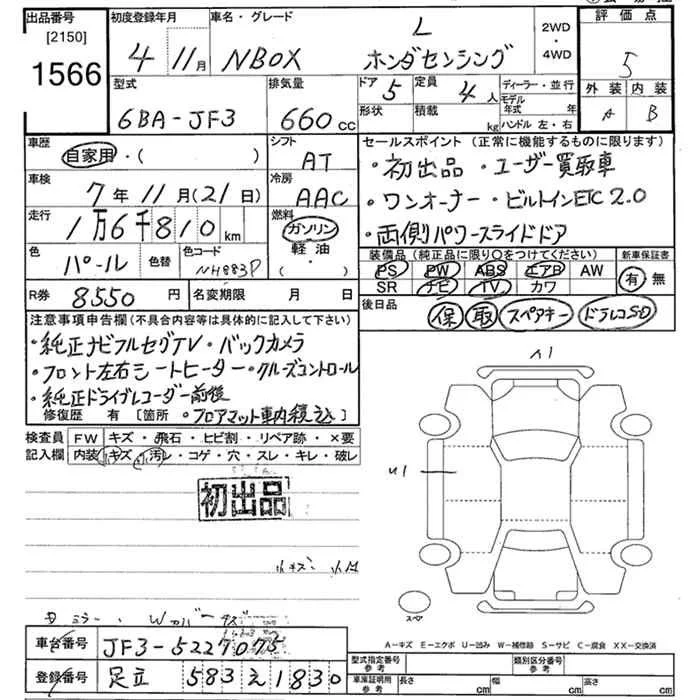 出品番号 初度登録年月 車名・グレード 評価点
[2150] L 2WD・4WD
1566 4 11月 NBOX ホンダセンシング 5
型式 排気量 ドア 5 定員 4人 ディーラー・並行 外装 内装
6BA-JF3 660cc 形状 積載 kg モデル年式 年 A B
ハンドル 左・右
車歴 シフト セールスポイント (正常に機能するものに限ります)
自家用・( ) AT ・初出品 ・ユーザー買取車
車検 7年11月(21日) 冷房 AAC ・ワンオーナー・ビルトインETC2.0
走行 1万6千810km 燃料 ガソリン・軽油・( ) ・両側パワースライドドア
色 パール 色替 色コード NH883P 装備品(純正品に限り○をつけてください) 新車保証書
PS PW ABS エアB AW 有・無
R券 8550円 名変期限 月 日 SR ナビ TV カワ
注意事項申告欄(不具合内容等は具体的に記入して下さい) 後日品 保 取 スペアキー ドラレコSD
・純正ナビフルセグTV・バックカメラ
・フロント左右シートヒーター・クルーズコントロール
・純正ドライブレコーダー前後
修復歴 有 [箇所 ・フロアマット車内積込]
検査員 FW キズ・飛石・ヒビ割・リペア跡・×要
記入欄 内装 小キズ・小汚レ・コゲ・穴・スレ・キレ・破レ
初出品
スペア
A-キズ E-エクボ U-凹み W-補修跡 S-サビ C-腐食 XX-交換済
車台番号 JF3-5227075
型式指定番号 参考 類別区分番号 参考
登録番号 足立 583 え 1830
車庫証明用 参考 長さ cm 幅 cm 高さ cm